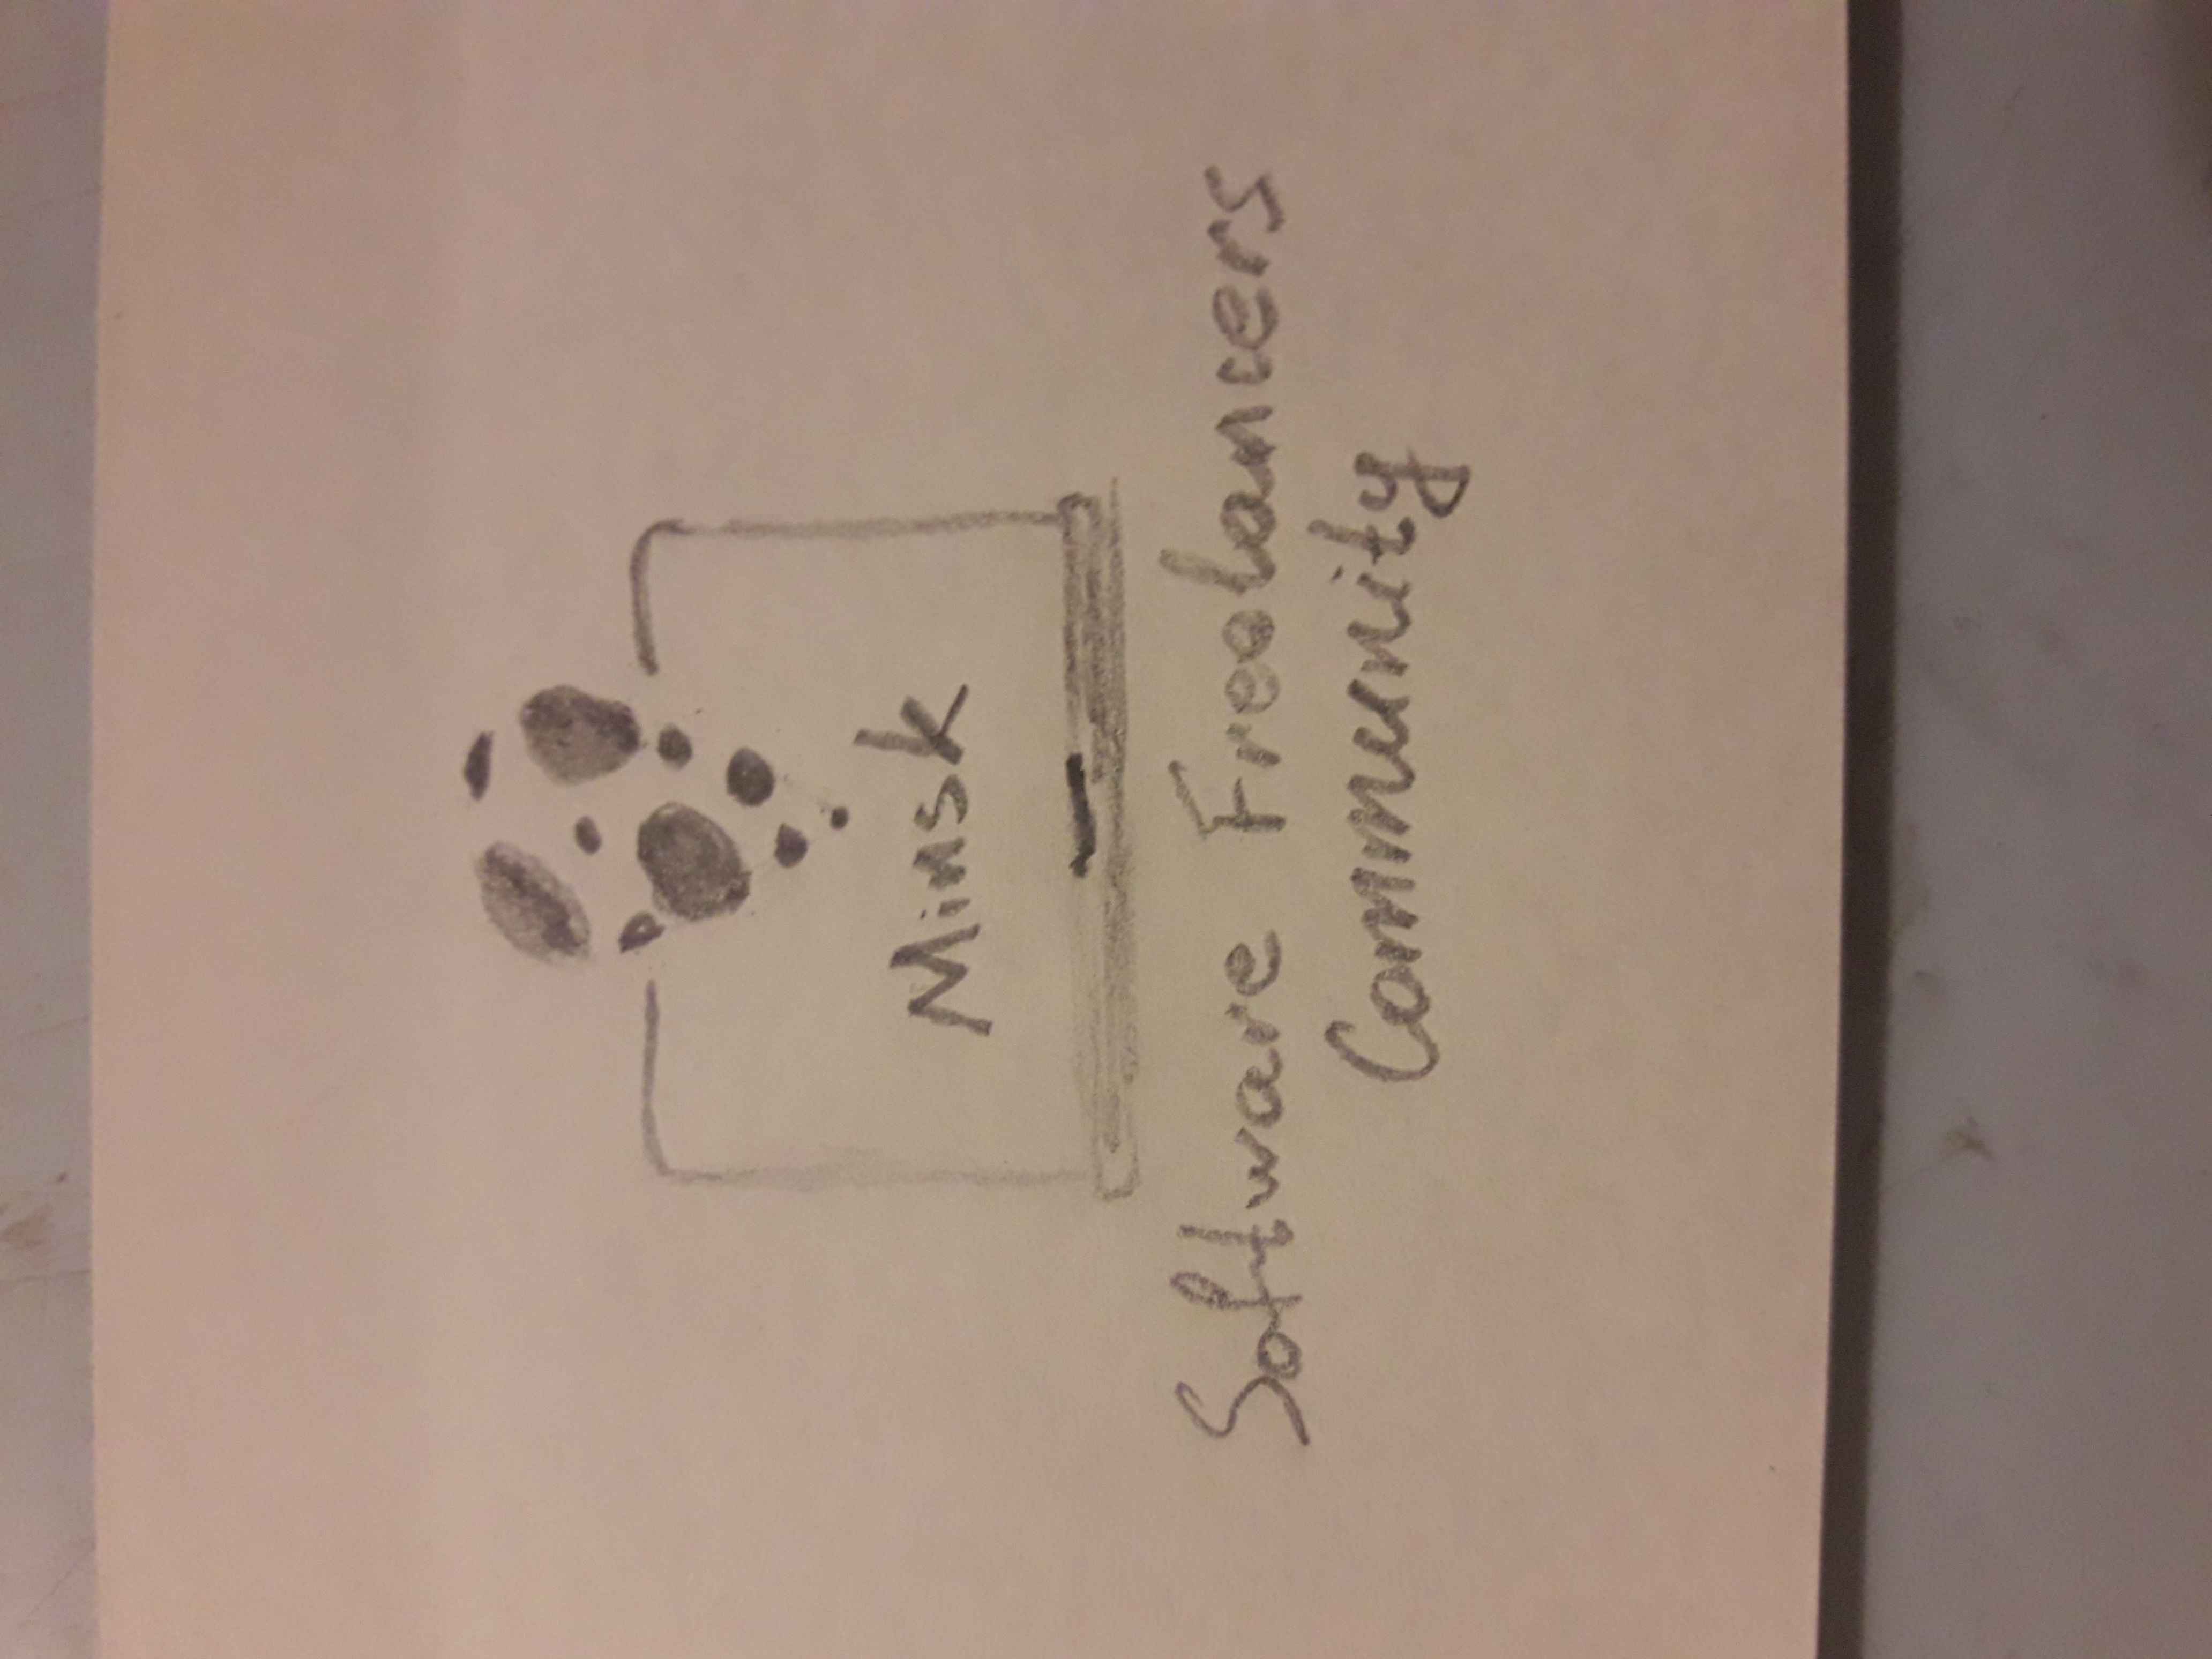 Minsk
Software Freelancers
Community